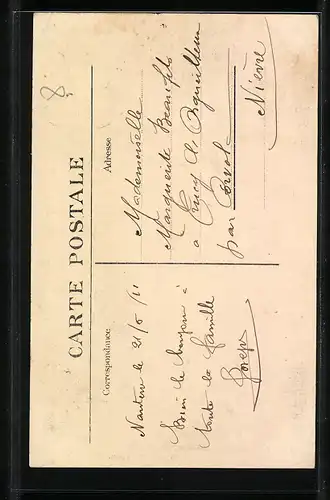 CARTE POSTALE
Correspondance
Nanterre le 21/5/11
Bien le bonjour à
toute la famille
Joseph
Adresse
Mademoiselle
Marguerite Beaufils
à Crucy
par Corvol
Nièvre
8